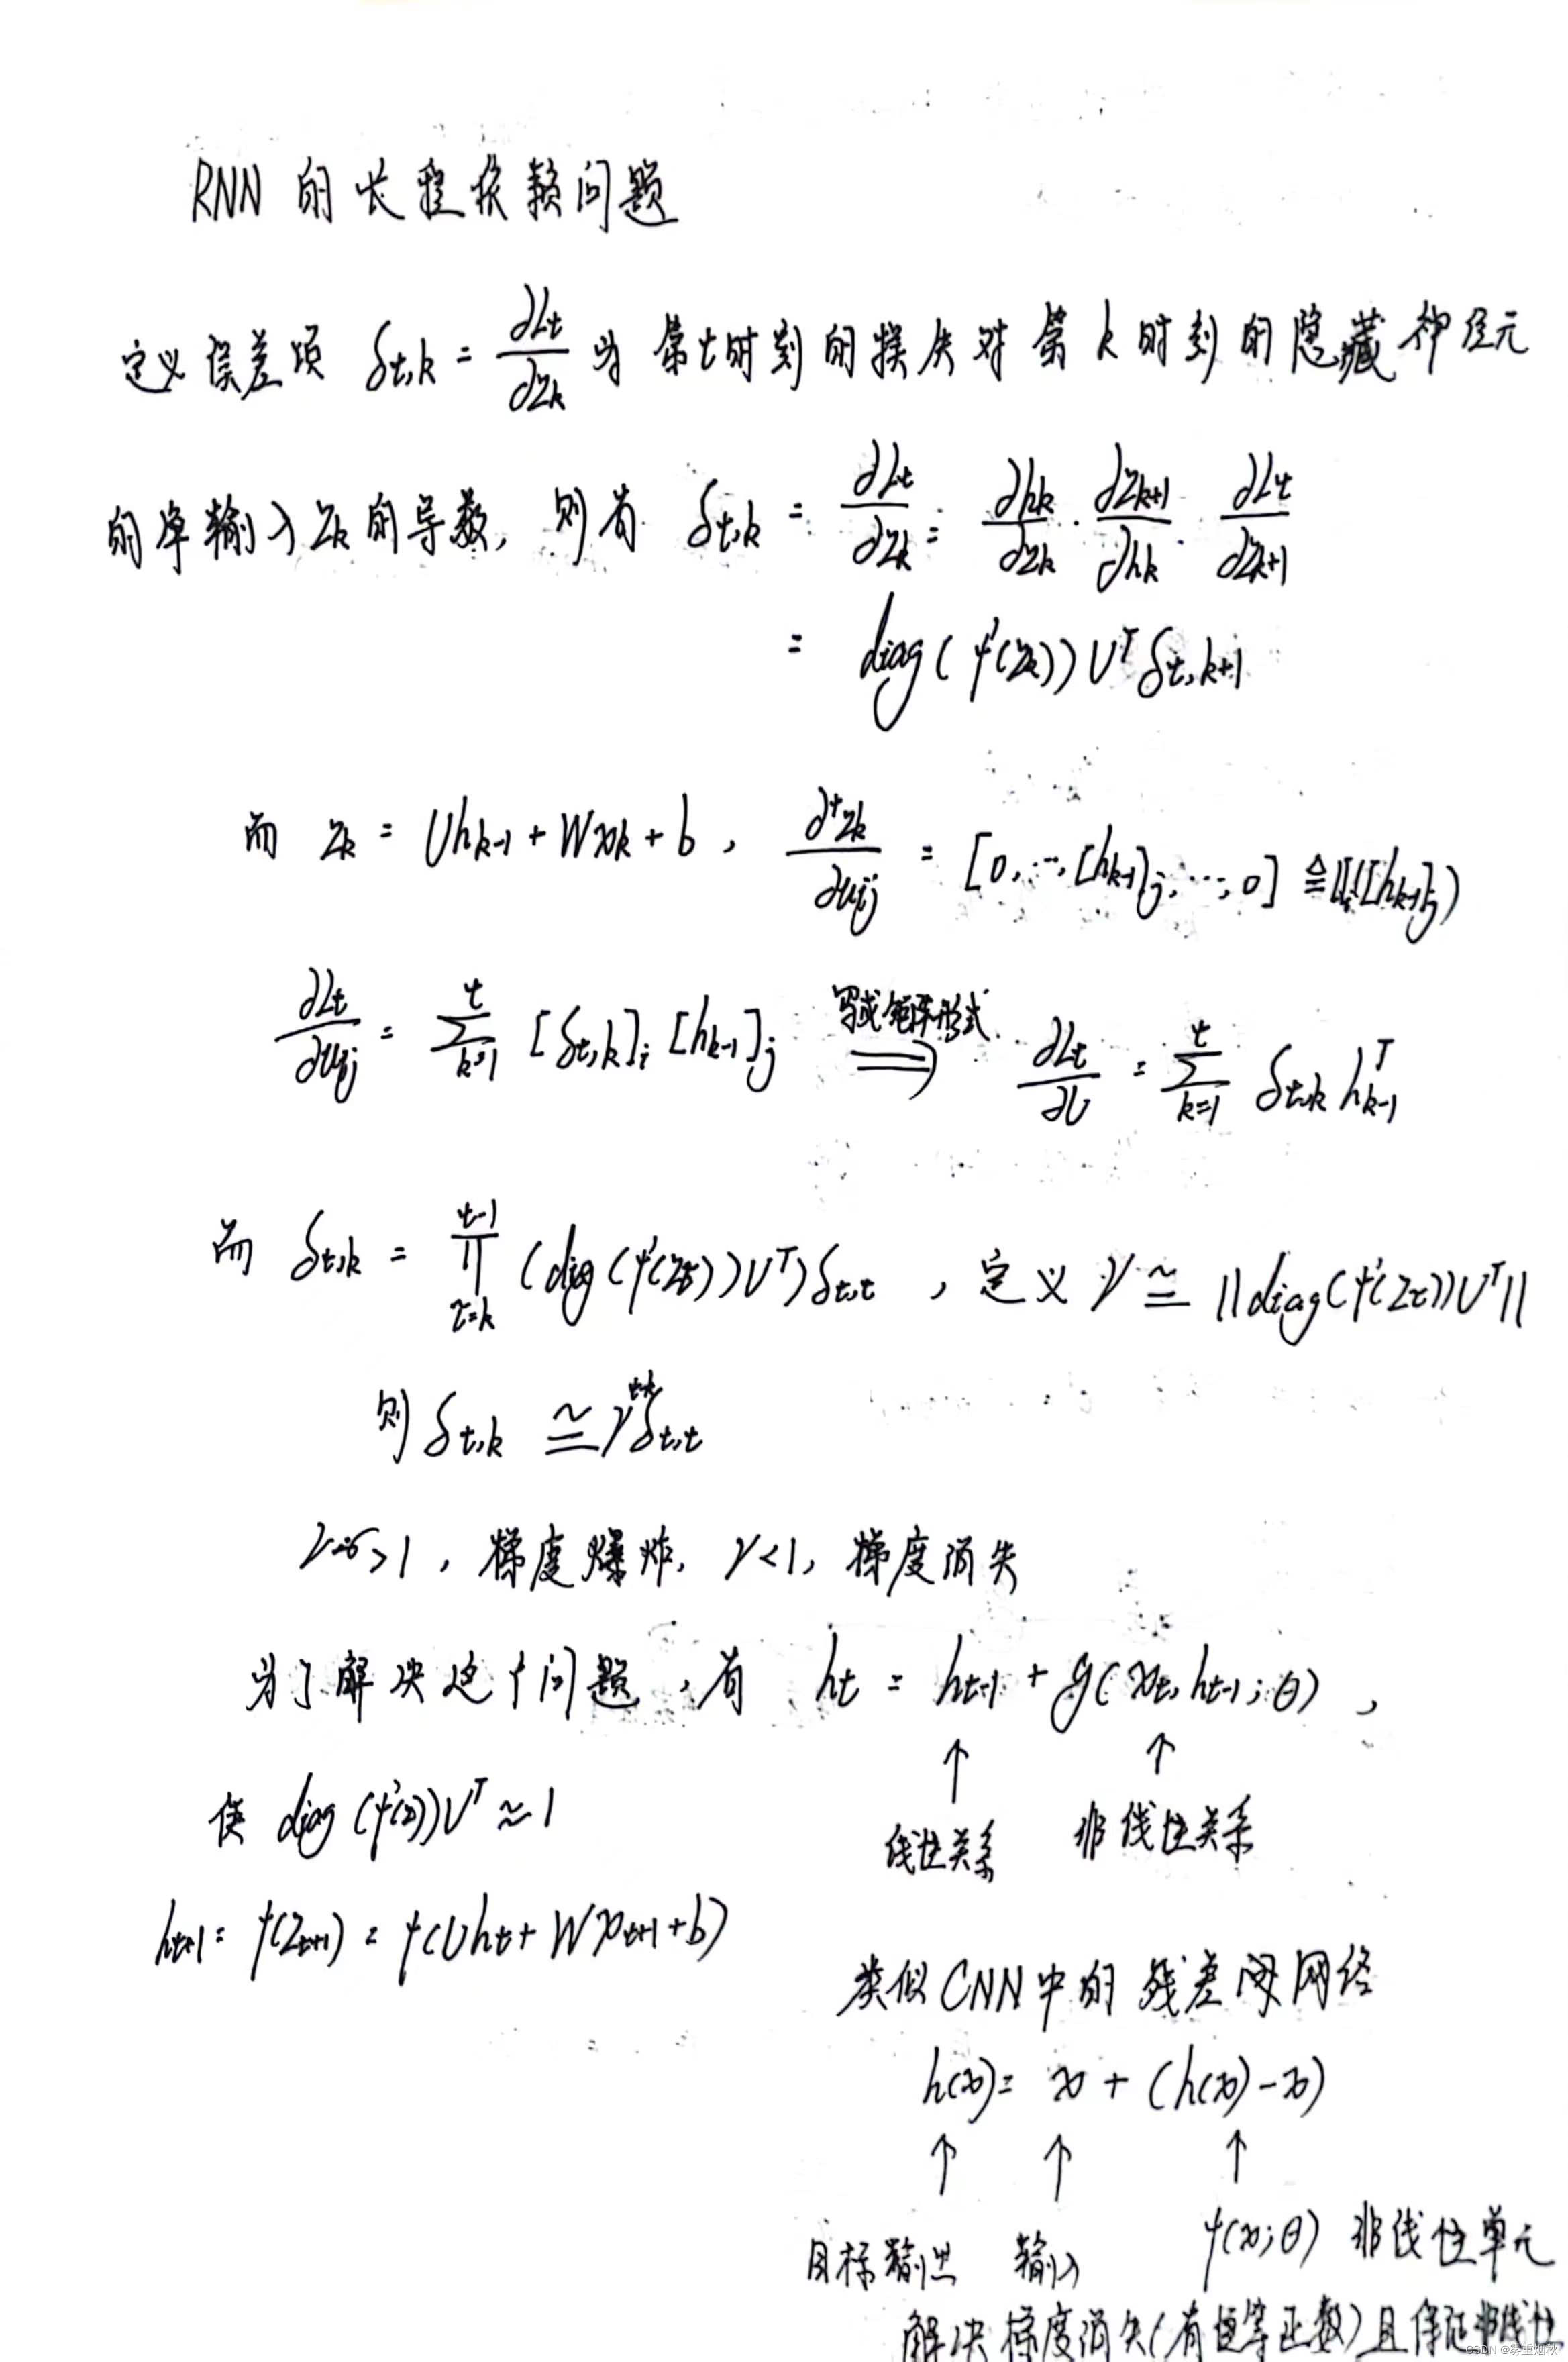 RNN 的长程依赖问题
定义误差项 δt,k = ∂Lt/∂zk 为第t时刻的损失对第k时刻的隐藏神经元
的净输入zk的导数, 则有 δt,k = ∂Lt/∂zk = ∂hk/∂zk · ∂zk+1/∂hk · ∂Lt/∂zk+1
= diag(φ'(zk))U^T δt,k+1
而 zk = Uhk-1 + Wxk + b, ∂⁺zk/∂uij = [0,…,[hk-1]j,…,0] ≜ 𝕀i([hk-1]j)
∂Lt/∂uij = Σ_{k=1}^{t} [δt,k]i [hk-1]j 写成矩阵形式 ⟹ ∂Lt/∂U = Σ_{k=1}^{t} δt,k h^T_{k-1}
而 δt,k = ∏_{τ=k}^{t-1} (diag(φ'(zτ))U^T)δt,t , 定义 γ ≅ ||diag(φ'(zτ))U^T||
则 δt,k ≅ γ^{t-k} δt,t
>1, 梯度爆炸, γ<1, 梯度消失
为了解决这个问题, 有 ht = ht-1 + g(xt, ht-1; θ),
↑ ↑
使 diag(φ'(z))U^T ≈ 1
线性关系 非线性关系
ht+1 = φ(zt+1) = φ(Uht + Wxt+1 + b)
类似CNN中的残差网络
h(x) = x + (h(x)-x)
↑ ↑ ↑
目标输出 输入 φ(x;θ) 非线性单元
解决梯度消失(有恒等正数)且保证非线性
CSDN @雾重烟秋